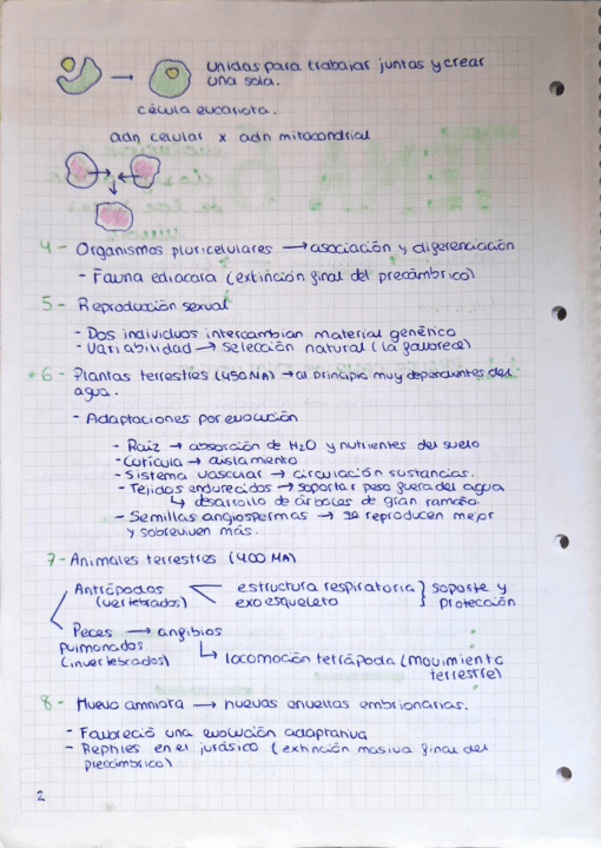 unidas para trabajar juntas y crear
una sola.
célula eucariota.
adn celular x adn mitocondrial
4 - Organismos pluricelulares → asociación y diferenciación
- Fauna ediacara (extinción final del precámbrico)
5 - Reproducción sexual
- Dos individuos intercambian material genético
- Variabilidad → selección natural (la favorece)
* 6 - Plantas terrestres (450 MA) → al principio muy dependientes del
agua.
- Adaptaciones por evolución
- Raíz → absorción de H2O y nutrientes del suelo
- Cutícula → aislamiento
- Sistema vascular → circulación sustancias.
- Tejidos endurecidos → soportar peso fuera del agua
↳ desarrollo de árboles de gran tamaño
- Semillas angiospermas → se reproducen mejor
y sobreviven más.
7 - Animales terrestres (400 MA)
Antrópodos estructura respiratoria } soporte y
(vertebrados) exoesqueleto } protección
Peces → anfibios
pulmonados ↳ locomoción tetrápoda (movimiento
(invertebrados) terrestre)
8 - Huevo amniota → nuevas envueltas embrionarias.
- Favoreció una evolución adaptativa
- Reptiles en el jurásico (extinción masiva final del
precámbrico)
2